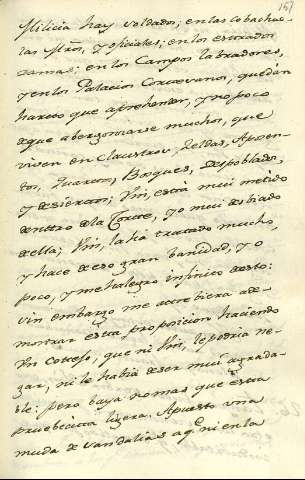 151
Milicia hay soldados; en las cobachue
las Ynos, y oficiales; en los estrados
Damas; en los Campos labradores,
y en los Palacios Cortesanos, quedan
hartos que aprehender, y no poco
de que abergonzarse muchos, que
viven en Claustros, Zeldas, Aposen-
tos, Quartos, Bosques, despoblado,
y desiertos; Vm, está mui metido
dentro de la Corte, yo mui desbiado
de ella; Vm, la há tratado mucho,
y hace de eso gran banidad, y o
poco, y me halegro infinito de esto:
sin embargo me atrebiera a de-
mostrar esta proposicion haciendo
Un Cotteso, que ni Vm, le podria ne-
gar, ni le habia de ser mui agrada-
ble: pero baya no mas que esta
pruebecitta lijera. Apuesto una
muda de vandalias aqe. ni en la